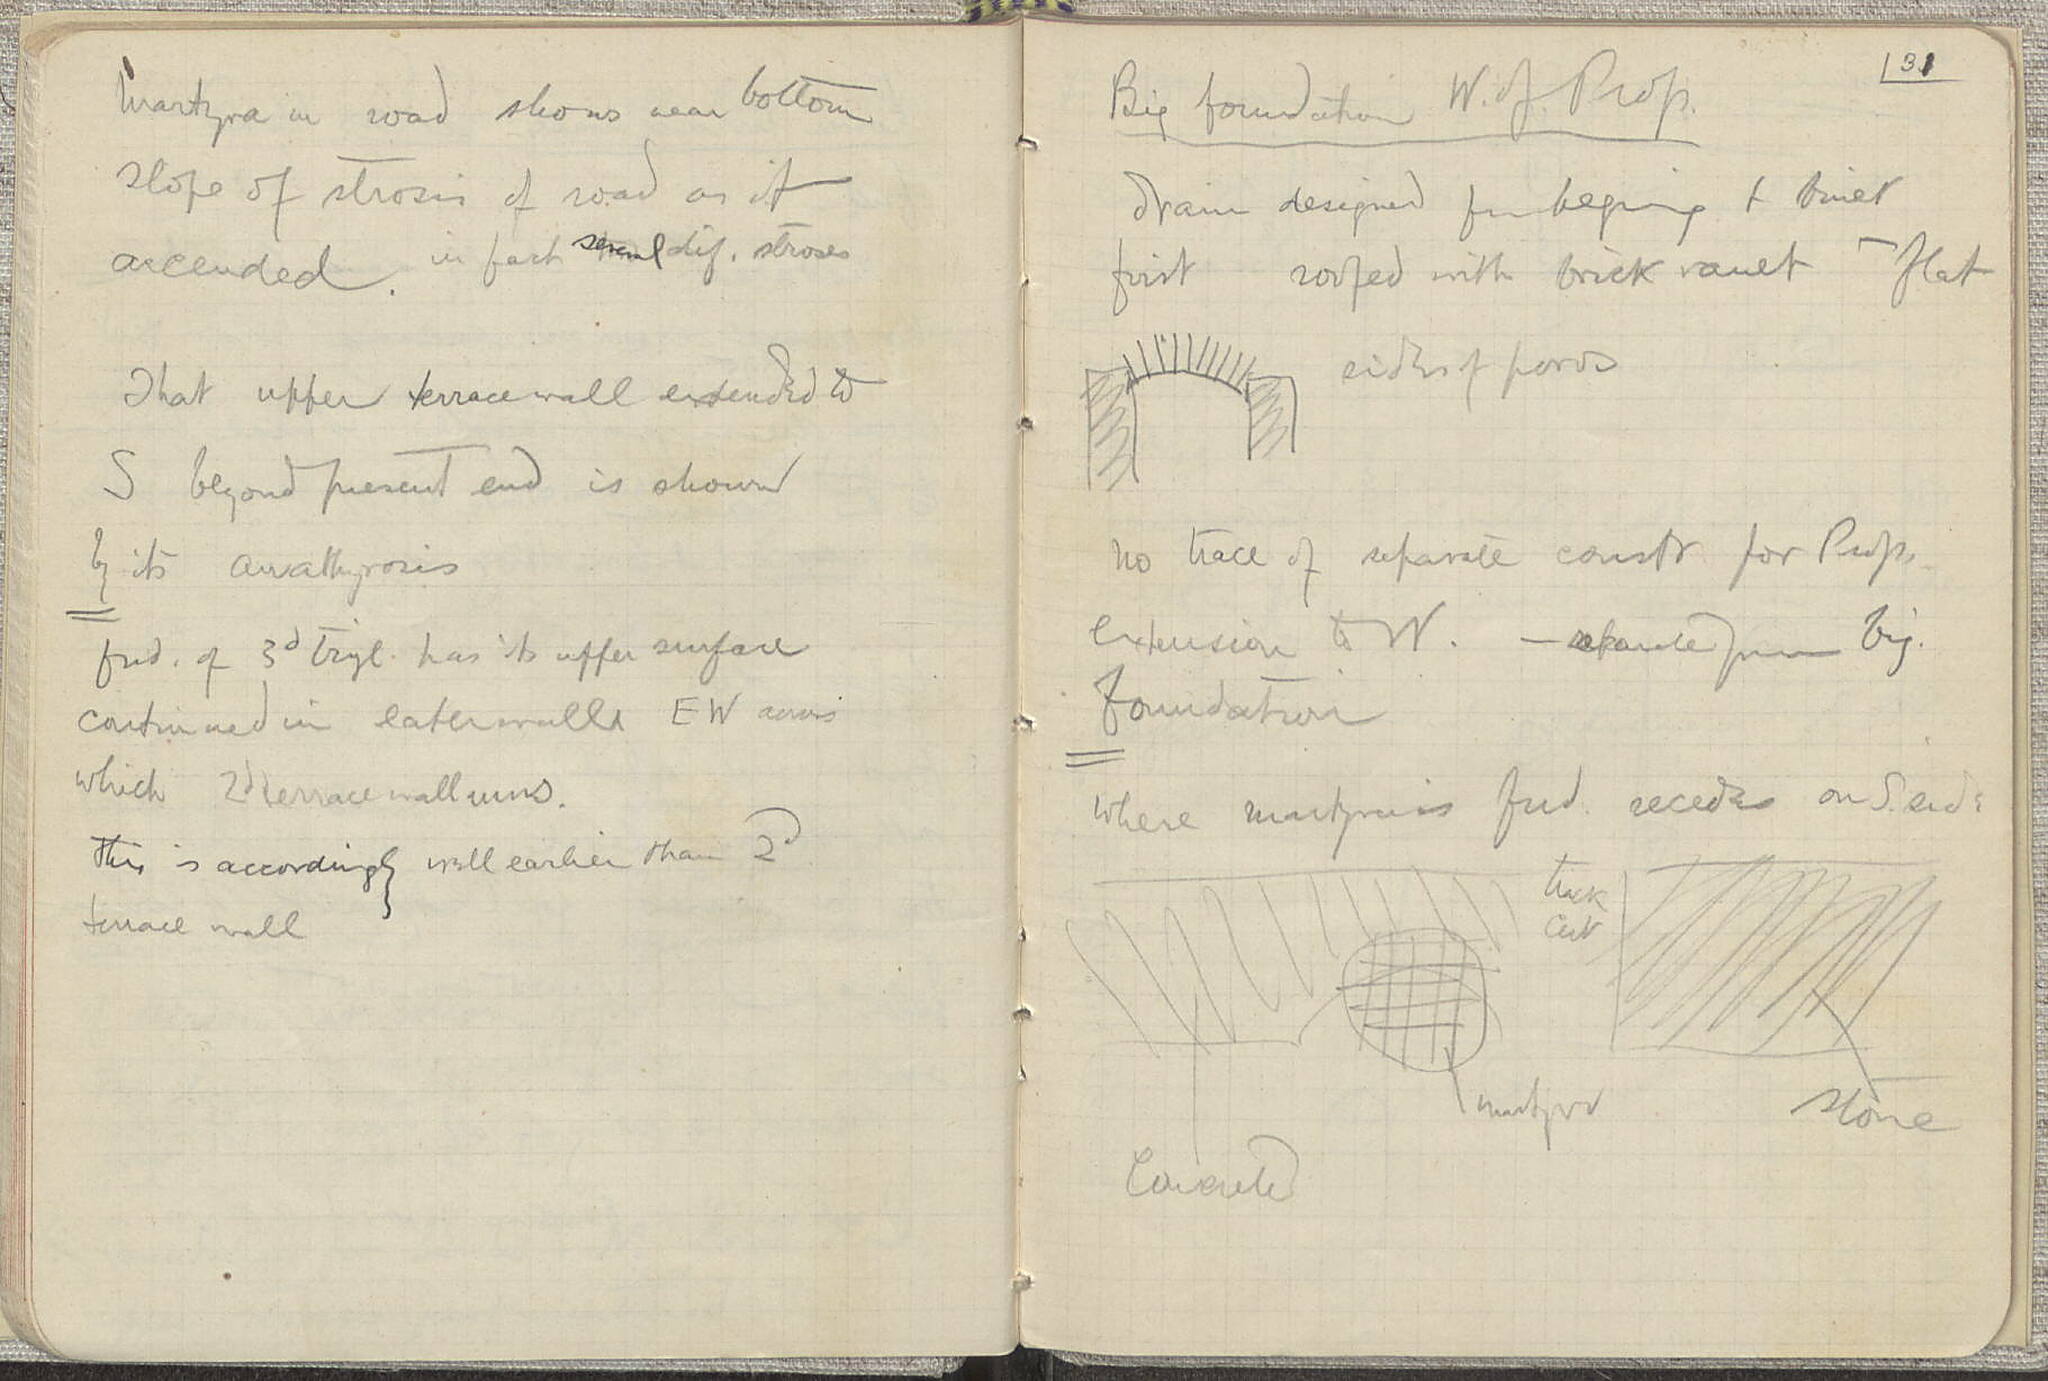 Martyra in road shows near bottom
slope of strosis of road as it
ascended. in fact several dif. stroses
That upper terrace wall extended to
S beyond present end is shown
by its anathyrosis
fnd. of 3d trigl. has its upper surface
continued in later walls EW across
which 2d terrace wall runs.
This is accordingly well earlier than 2d
terrace wall
31
Big foundation W. of Prop.
Drain designed beginning + built
first roofed with brick vault – flat
sides of poros
no trace of separate constr for Prop.
extension to W. – separate from big.
foundation
where martyra's fnd. recedes on S. end:
thick
cut
martyra
stone
Concrete